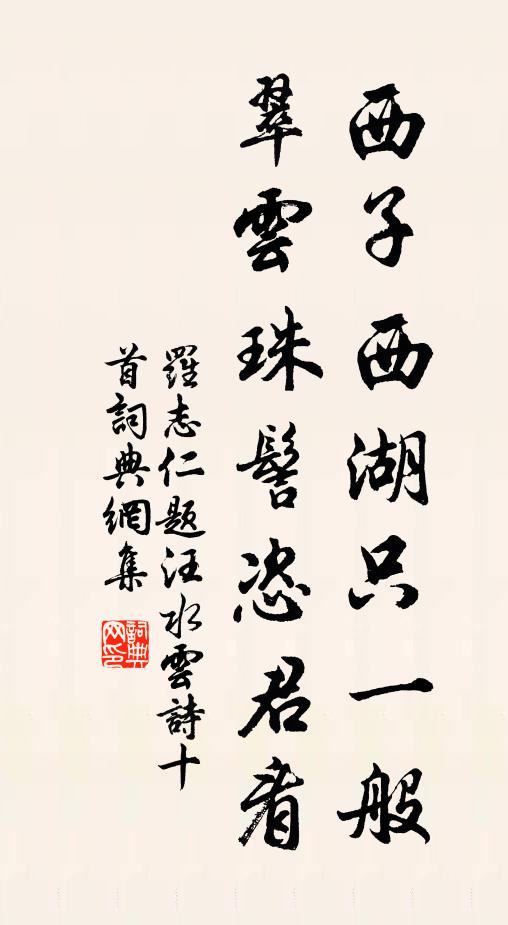 西子西湖只一般
翠雲珠髻恣君看
羅志仁題汪水雲詩十
首詞典網集
詞典網印